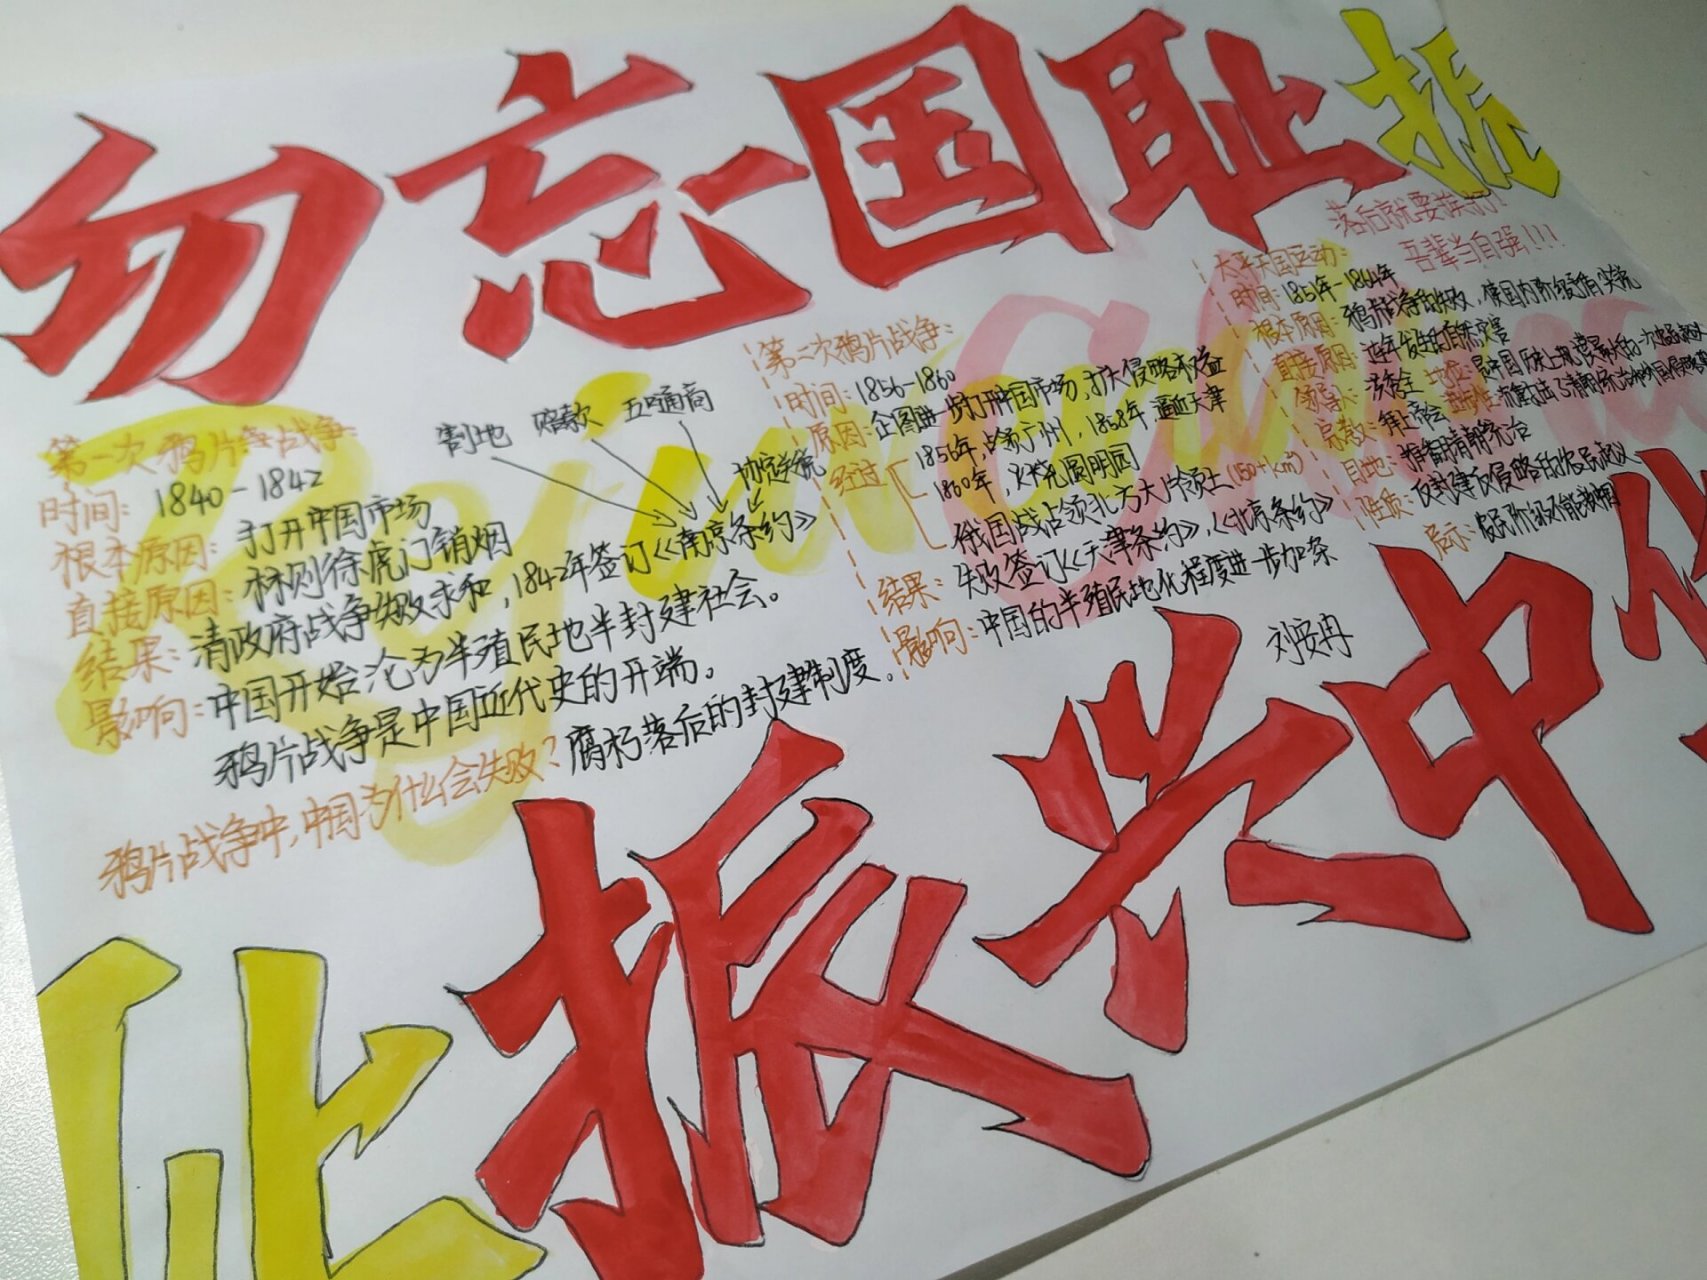 勿忘国耻振
落后就要挨打!
吾辈当自强!!!
第一次鸦片战争:
时间: 1840-1842
根本原因: 打开中国市场
直接原因: 林则徐虎门销烟
割地 赔款 五口通商
协定关税
结果: 清政府战争失败求和,1842年签订《南京条约》
影响: 中国开始沦为半殖民地半封建社会。
鸦片战争是中国近代史的开端。
鸦片战争中,中国为什么会失败? 腐朽落后的封建制度。
第二次鸦片战争:
时间: 1856-1860
原因: 企图进一步打开中国市场,扩大侵略权益
经过 1856年,占领广州,1858年逼近天津
1860年,火烧圆明园
俄国战占领北方大片领土(150+km²)
结果: 失败签订《天津条约》,《北京条约》
影响: 中国的半殖民地化程度进一步加深
太平天国运动:
时间: 1851年-1864年
根本原因: 鸦片战争的失败,使国内阶级
直接原因: 连年发生的自然灾害
领导人: 洪秀全 地位: 是中国历史上规模最大的一次农民
宗教: 拜上帝会
目地: 推翻清朝统治
性质: 反封建反侵略的农民起义
启示: 农民阶级不能救国
刘安冉
Rejuvenating China
振兴中华